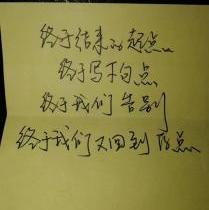 终于结束的起点
终于写下句点
终于我们告别
终于我们又回到原点